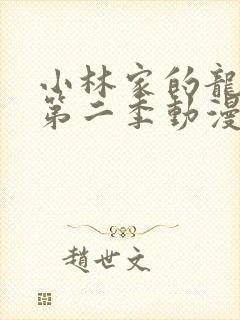 小林家的龍
第二季動漫
趙世文